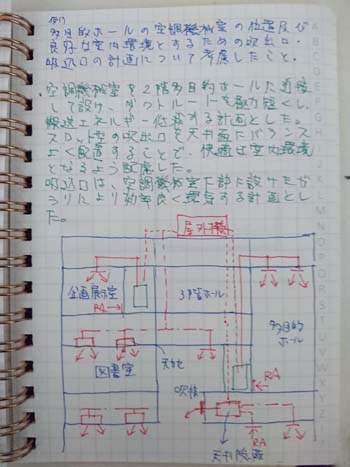 例)
多目的ホールの空調機械室の位置及び
良好な室内環境とするための吹出口、
吸込口の計画について考慮したこと。
・空調機械室を2階多目的ホールに近接
して設け、ダクトルートを極力短くし、
搬送エネルギー低減する計画とした。
スロット型の吹出口を天井面にバランス
よく配置することで、快適な室内環境
となるよう配慮した。
吸込口は、空調機械室下部に設けたガ
ラリにより効率良く還気する計画とし
た。
屋外機
企画展示室
3階ホール
多目的
ホール
RA
天カセ
図書室
RA
吹抜
RA
天井隠蔽